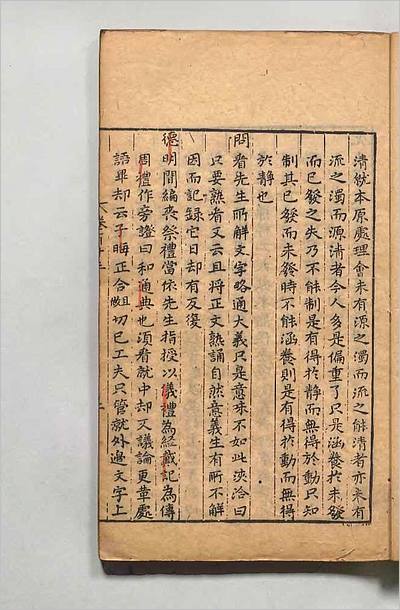 清就本原處理會未有源之濁而流之能清者亦未有
流之濁而源清者今人多是偏重了只是涵養於未發
而已發之失乃不能制是有得於静而無得於動只知
制其已發而未發時不能涵養則是有得於動而無得
於静也
問看先生所觧文字略通大義只是意味不如此浹洽曰
只要熟看又云且將正文熟誦自然意義生有所不觧
因而記録它日却有反復
德明問編喪祭禮當依先生指授以儀禮為經戴記為傳
周禮作旁證曰和通典也須看就中却又議論更革處
語畢却云子晦正合且做切已工夫只管就外邊文字上